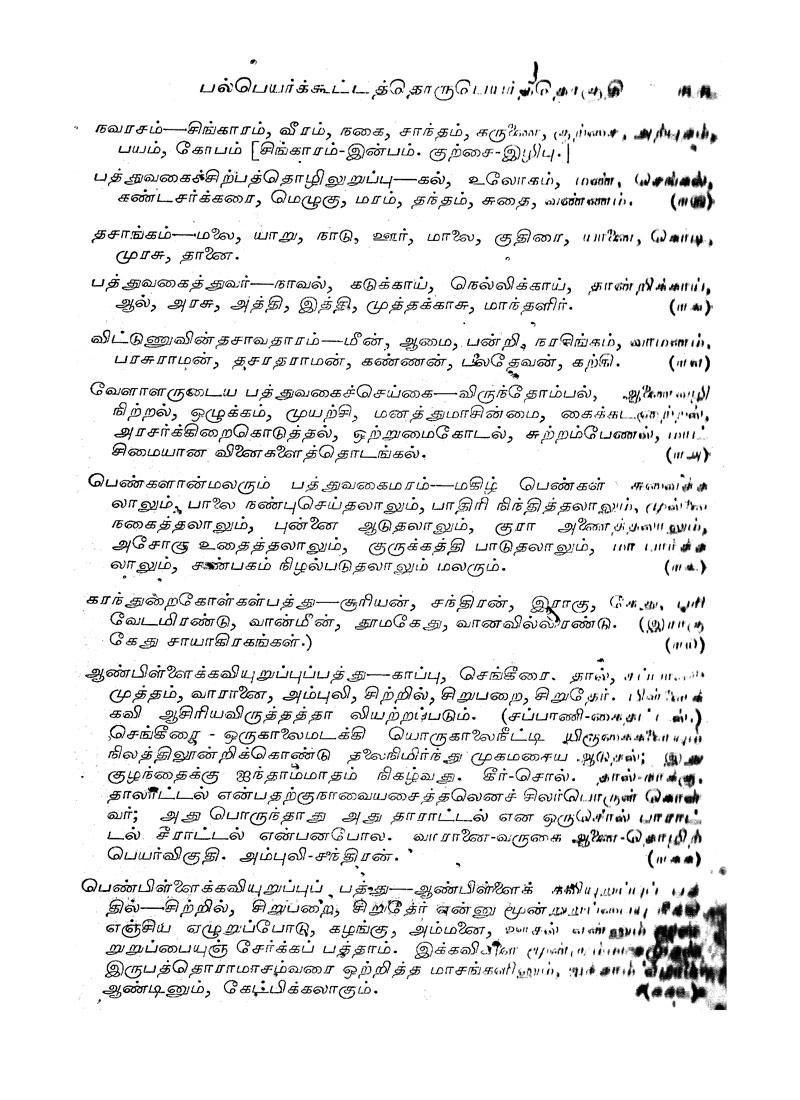 பல்பெயர்க்கூட்டத்தொருபெயர்த்தொகுதி
நவரசம்—சிங்காரம், வீரம், நகை, சாந்தம், கருணை, குற்சை, அற்புதம்,
பயம், கோபம் [சிங்காரம்-இன்பம். குற்சை-இழிபு.]
பத்துவகைச்சிற்பத்தொழிலுறுப்பு—கல், உலோகம், மண், செங்கல்,
கண்டசர்க்கரை, மெழுகு, மரம், தந்தம், சுதை, வண்ணம்.
தசாங்கம்—மலை, யாறு, நாடு, ஊர், மாலை, குதிரை, யானை, கொடி,
முரசு, தானை.
பத்துவகைத்துவர்—நாவல், கடுக்காய், நெல்லிக்காய், தான்றிக்காய்,
ஆல், அரசு, அத்தி, இத்தி, முத்தக்காசு, மாந்தளிர்.
விட்டுணுவின்தசாவதாரம்—மீன், ஆமை, பன்றி, நரசிங்கம், வாமனம்,
பரசுராமன், தசரதராமன், கண்ணன், பலதேவன், கற்கி.
வேளாளருடைய பத்துவகைச்செய்கை—விருந்தோம்பல், ஆணைவழி
நிற்றல், ஒழுக்கம், முயற்சி, மனத்துமாசின்மை, கைக்கடனாற்றல்,
அரசர்க்கிறைகொடுத்தல், ஒற்றுமைகோடல், சுற்றம்பேணல், மாட்
சிமையான வினைகளைத்தொடங்கல்.
பெண்களான்மலரும் பத்துவகைமரம்—மகிழ் பெண்கள் சுவைத்த
லாலும், பாலை நண்புசெய்தலாலும், பாதிரி நிந்தித்தலாலும், முல்லை
நகைத்தலாலும், புன்னை ஆடுதலாலும், குரா அணைத்தலாலும்,
அசோகு உதைத்தலாலும், குருக்கத்தி பாடுதலாலும், மா பார்த்த
லாலும், சண்பகம் நிழல்படுதலாலும் மலரும்.
கரந்துறைகோள்கள்பத்து—சூரியன், சந்திரன், இராகு, கேது, பரி
வேடமிரண்டு, வான்மீன், தூமகேது, வானவில்லிரண்டு. (இராகு
கேது சாயாகிரகங்கள்.)
ஆண்பிள்ளைக்கவியுறுப்புப்பத்து—காப்பு, செங்கீரை. தால், சப்பாணி
முத்தம், வாரானை, அம்புலி, சிற்றில், சிறுபறை, சிறுதேர். பிள்ளைக்
கவி ஆசிரியவிருத்தத்தா லியற்றப்படும். (சப்பாணி-கைதட்டல்.)
செங்கீரை - ஒருகாலைமடக்கி யொருகாலைநீட்டி யிருகைகளையும்
நிலத்திலூன்றிக்கொண்டு தலைநிமிர்ந்து முகமசைய ஆடுதல்; இது
குழந்தைக்கு ஐந்தாம்மாதம் நிகழ்வது. கீர்-சொல். தால்-நாக்கு.
தாலாட்டல் என்பதற்குநாவையசைத்தலெனச் சிலர்பொருள் கொள்
வர்; அது பொருந்தாது அது தாராட்டல் என ஒருசொல் பாராட்
டல் சீராட்டல் என்பனபோல. வாரானை-வருகை ஆனை-தொழிற்
பெயர்விகுதி. அம்புலி-சந்திரன்.
பெண்பிள்ளைக்கவியுறுப்புப் பத்து—ஆண்பிள்ளைக் கவியுறுப்புப் பத்
தில்—சிற்றில், சிறுபறை, சிறுதேர் என்னு மூன்றுறுப்பையு
எஞ்சிய ஏழுறுப்போடு, கழங்கு, அம்மனை, ஊசல் என்னும்
றுறுப்பையுஞ் சேர்க்கப் பத்தாம். இக்கவிகளை
இருபத்தொராமாசம்வரை ஒற்றித்த மாசங்களினும்,
ஆண்டினும், கேட்பிக்கலாகும்.